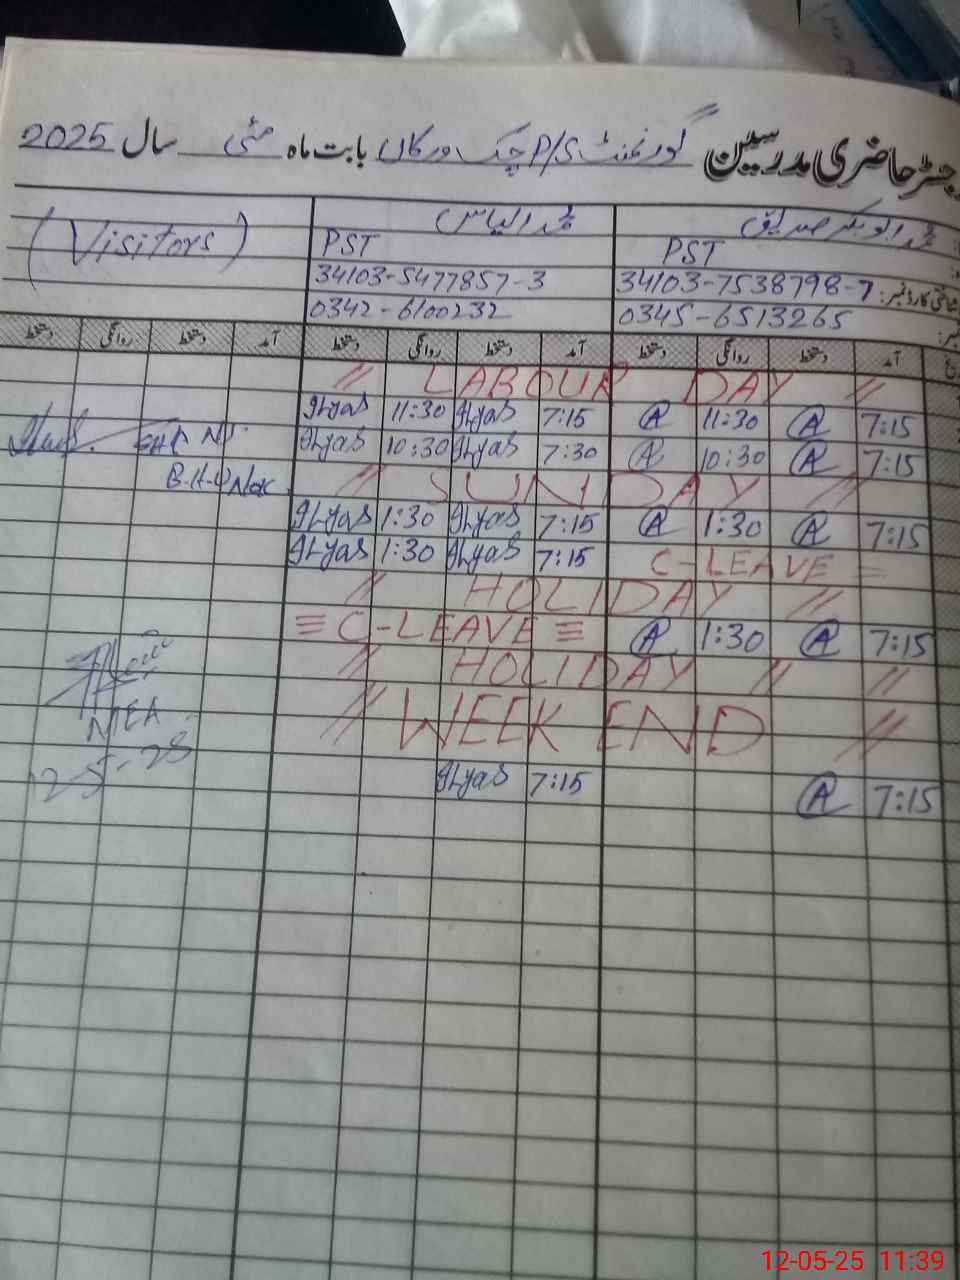 رجسٹر حاضری مدرسین گورنمنٹ P/S چک ورکاں بابت ماہ مئی سال 2025
محمد ابوبکر صدیق محمد الیاس (Visitors)
PST PST
شناختی کارڈ نمبر: 34103-7538798-7 34103-5477857-3
0345-6513265 0342-6100232
آمد دستخط روانگی دستخط آمد دستخط روانگی دستخط آمد دستخط روانگی دستخط
// LABOUR DAY //
Ilyas 11:30 Ilyas 7:15 A 11:30 A 7:15
Ilyas 10:30 Ilyas 7:30 A 10:30 A 7:15
B.H.U
// SUNDAY //
Ilyas 1:30 Ilyas 7:15 A 1:30 A 7:15
Ilyas 1:30 Ilyas 7:15 C-LEAVE =
// HOLIDAY //
≡ C-LEAVE ≡ A 1:30 A 7:15
// HOLIDAY // //
// WEEK END //
MEA
12-5-25
Ilyas 7:15 A 7:15
12-05-25 11:39